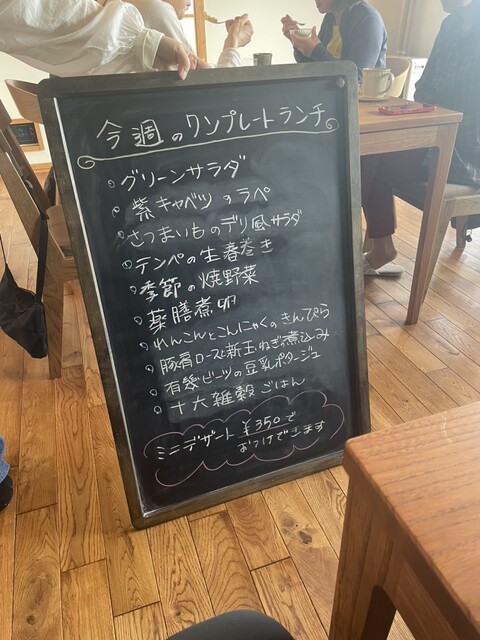 今週のワンプレートランチ
グリーンサラダ
紫キャベツのラペ
さつまいものデリ風サラダ
テンペの生春巻き
季節の焼野菜
薬膳煮卵
れんこんとこんにゃくのきんぴら
豚肩ロースと新玉ねぎの煮込み
有機ビーツの豆乳ポタージュ
十六雑穀ごはん
ミニデザート ¥350で
おつけできます